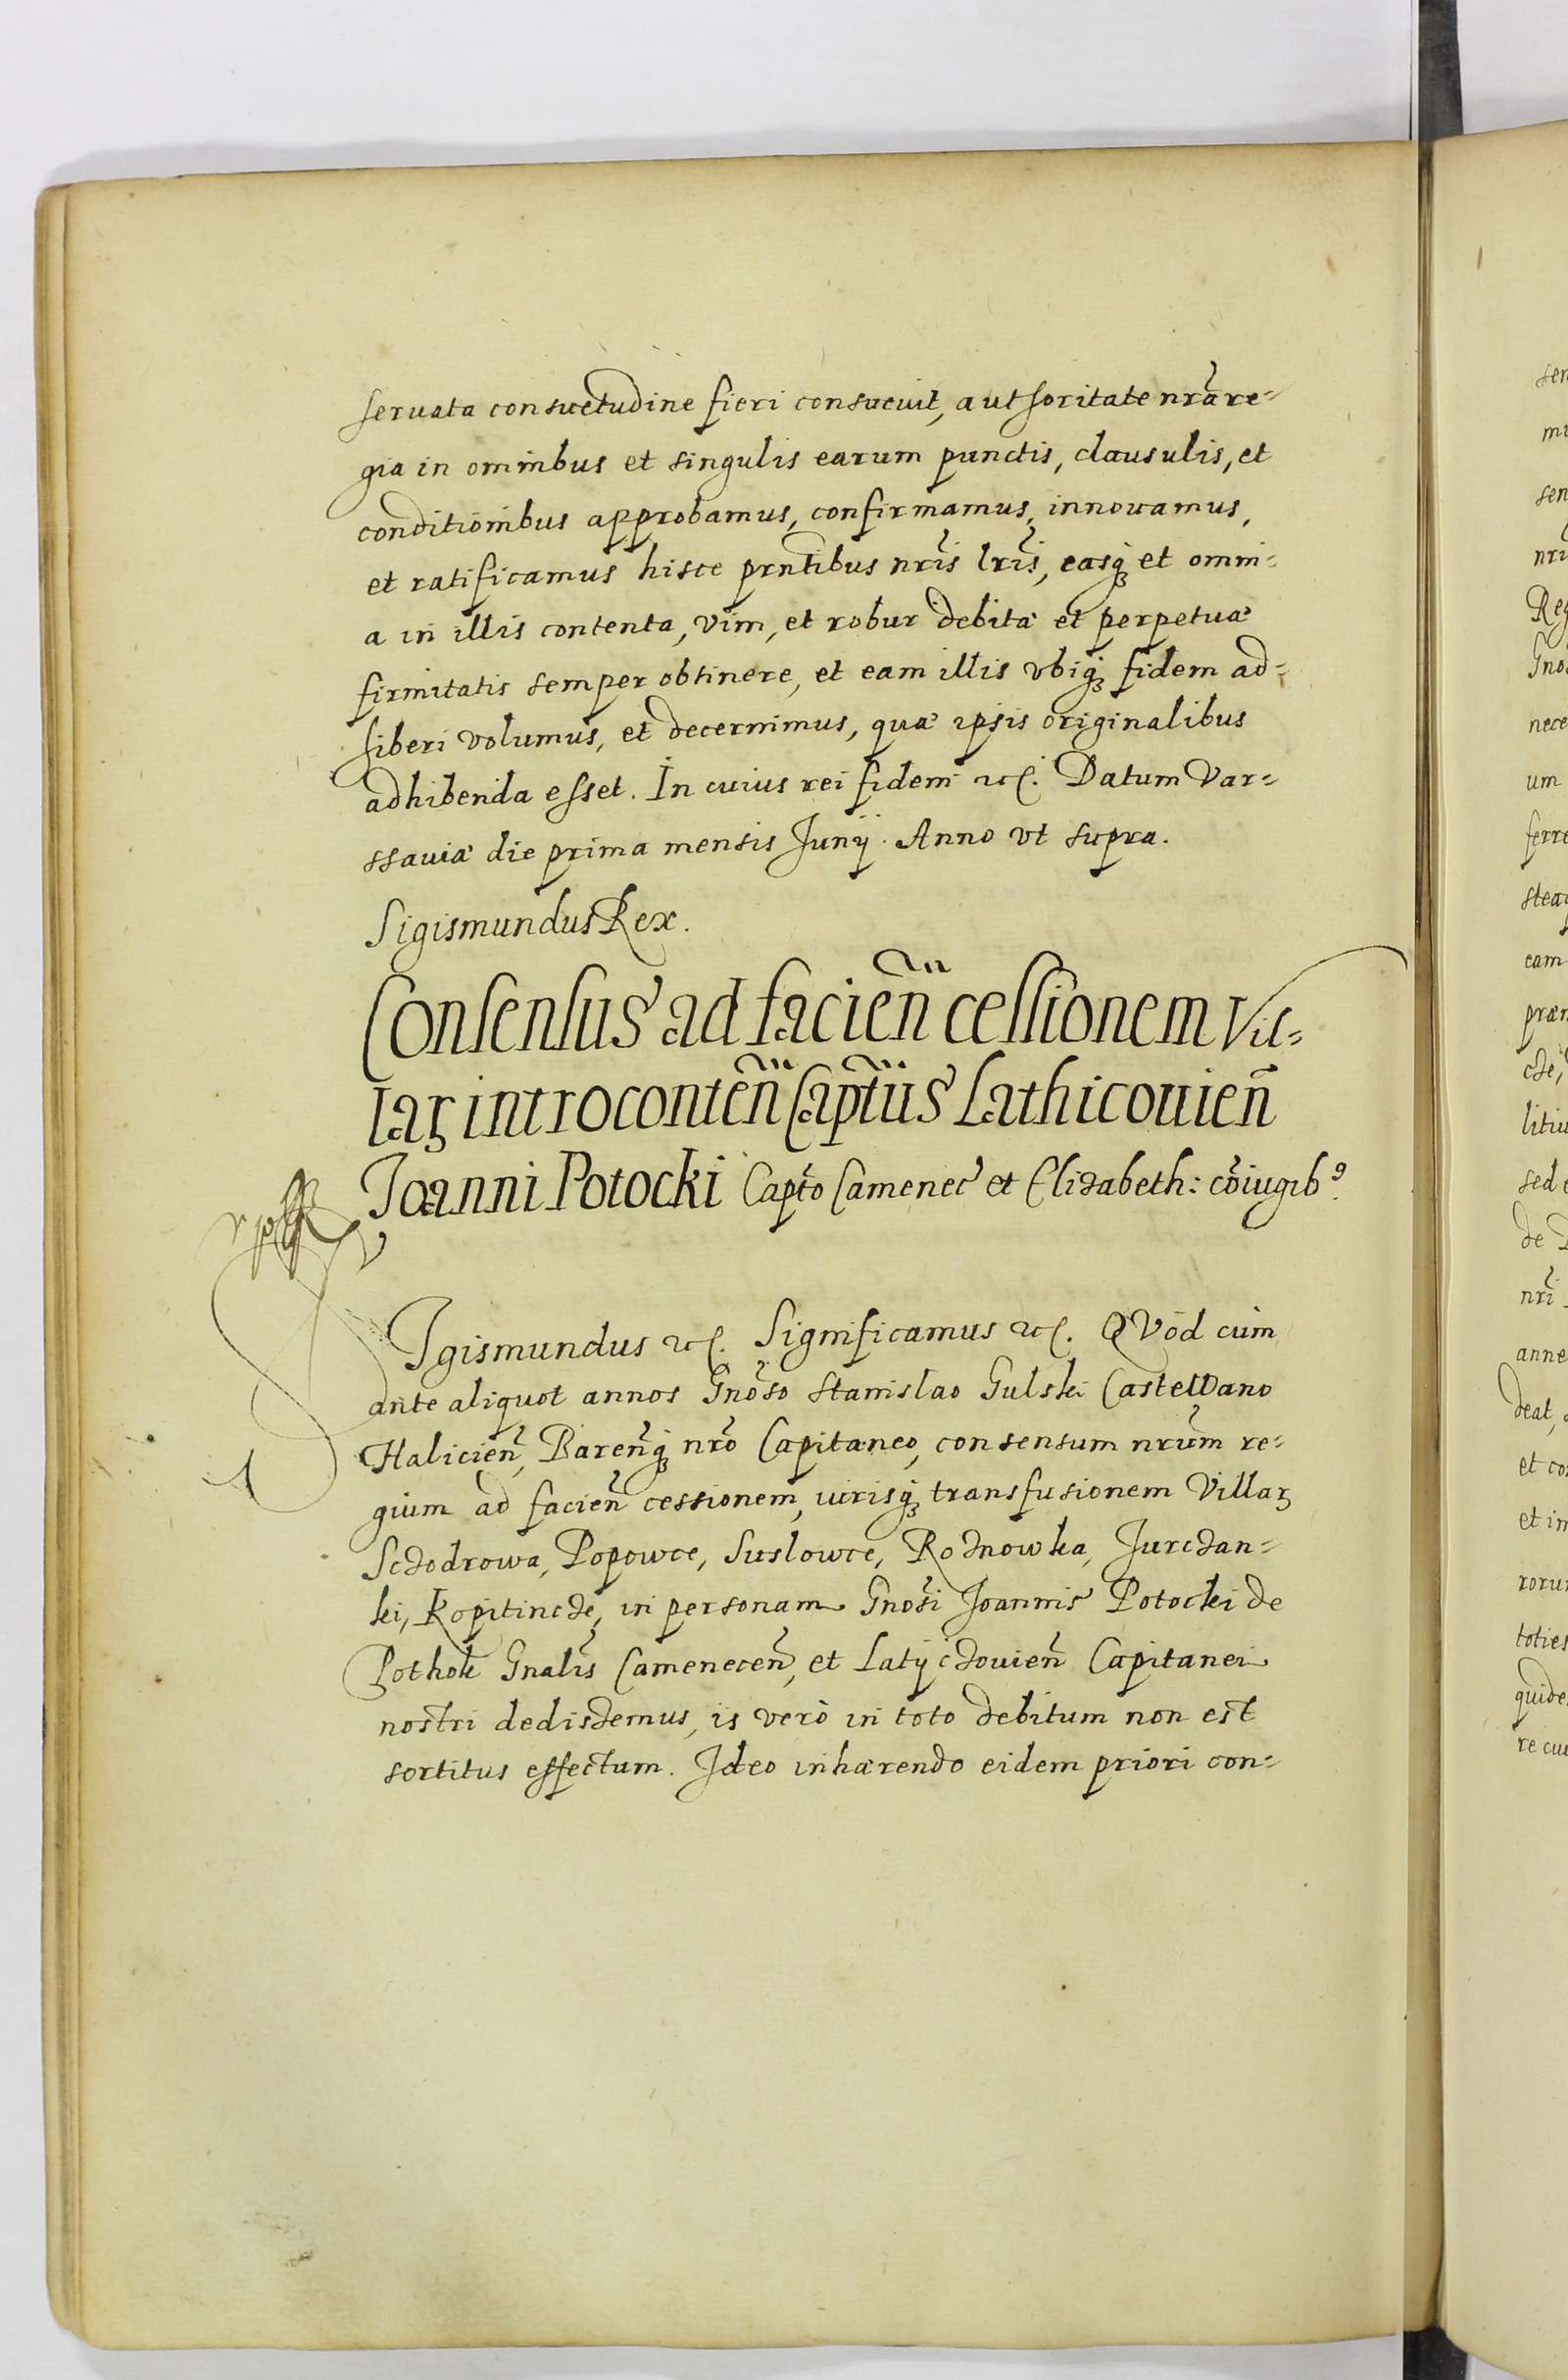 seruata consuetudine fieri consueuit, authoritate nrã re-
gia in omnibus et singulis earum punctis, clausulis, et
conditionibus approbamus, confirmamus, innouamus,
et ratificamus hisce prntibus nris lris, easq; et omni-
a in illis contenta, vim, et robur debitæ et perpetuæ
firmitatis semper obtinere, et eam illis vbiq; fidem ad-
hiberi volumus, et decernimus, quæ ipsis originalibus
adhibenda esset. In cuius rei fidem etc. Datum Var-
ssauiæ die prima mensis Junij. Anno vt supra.
Sigismundus Rex.
Consensus ad facien̄ cessionem Vil-
laꝝ introconten̄ Captūs Lathicouien̄
Joanni Potocki Capto Camenec̄ et Elizabeth: cōiugib9.
SIgismundus etc. Significamus etc. QVod cùm
ante aliquot annos Gnoso Stanislao Gulski Castellano
Halicien̄, Baren̄q; nro Capitaneo, consensum nrum re-
gium ad facien̄ cessionem, iurisq; transfusionem Villaꝝ
Sczodrowa, Popowce, Suslowce, Roznowka, Jurczan-
ki, Kopitincze, in personam Gnosi Joannis Potocki de
Pothok Gnalis Camenecen̄, et Latijczouien̄ Capitanei
nostri dedissemus, is verò in toto debitum non est
sortitus effectum. Ideo inhærendo eidem priori con-